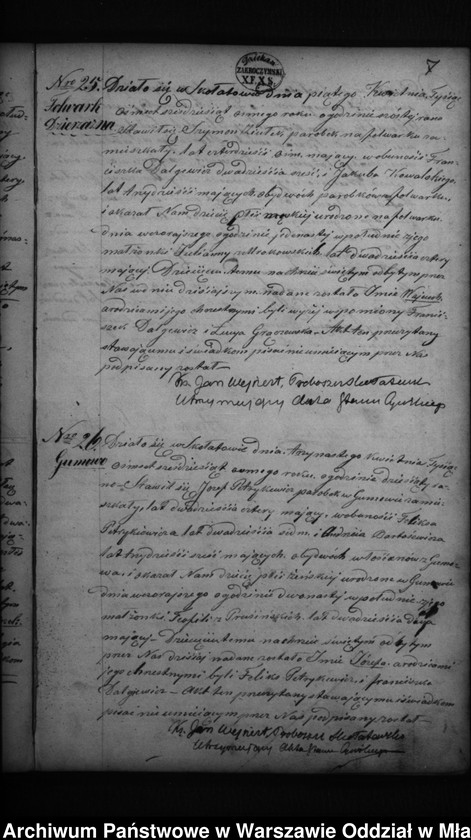 7
Dziekan
ZAKROCZYMSKI
Nro 25.
Folwark
Działo się w Szkołatowie dnia piątego Kwietnia Tysiąc
ośmset sześdziesiąt ósmego roku, o godzinie szóstej rano
Stawił się Szymon parobek na folwarku za-
mieszkały, lat czterdzieści ośm, mający, w obecności Fran-
ciszka Dalgewicz dwadzieścia sześć, i Jakuba Kowalskiego,
lat trzydzieści mających, obydwóch parobków na folwarku,
i okazał Nam dziecię płci męskiej urodzone na folwarku
dnia wczorajszego o godzinie jedenastej w południe z jego
małżonki lat dwadzieścia cztery
mającej. Dziecięciu temu na chrzcie świętym odbytym przez
Nas w dniu dzisiejszym, nadane zostało Imię Wojciech
a rodzicami jego chrzestnymi byli wyżej wspomniony Franci-
szek Dalgewicz i Akt ten przeczytany
stawającemu i świadkom pisać nie umiejącym przez Nas
podpisany został
Ks. Jan Wejnert, Proboszcz
Utrzymujący Akta Stanu Cywilnego
Nro 26.
Gumowo
Działo się w Szkołatowie dnia, trzynastego Kwietnia Tysiąc
ośmset sześdziesiąt ósmego roku, o godzinie dziesiątej ra-
no - Stawił się, Józef Petrykiewicz parobek w Gumowie zamie-
szkały, lat dwadzieścia cztery mający, w obecności Feliksa
Petrykiewicza lat dwadzieścia siedm, i Andrzeja Bartosiewicza
lat trzydzieści sześć mających, obydwóch włościanów z Gumo-
wa, i okazał Nam dziecię płci żeńskiej urodzone w Gumowie
dnia wczorajszego o godzinie dwunastej w południe z jego
małżonki Teofili z lat dwadzieścia dwa
mającej - Dziecięciu temu na chrzcie świętym odbytym
przez Nas dzisiaj nadane zostało Imię Józefa, a rodzicami
jego chrzestnymi byli Feliks Petrykiewicz i Franciszka
Dalgiewicz - Akt ten przeczytany stawającemu i świadkom
pisać nie umiejącym przez Nas podpisany został -
Ks. Jan Wejnert, Proboszcz
Utrzymujący Akta Stanu Cywilnego
Archiwum Państwowe w Warszawie Oddział w Mła